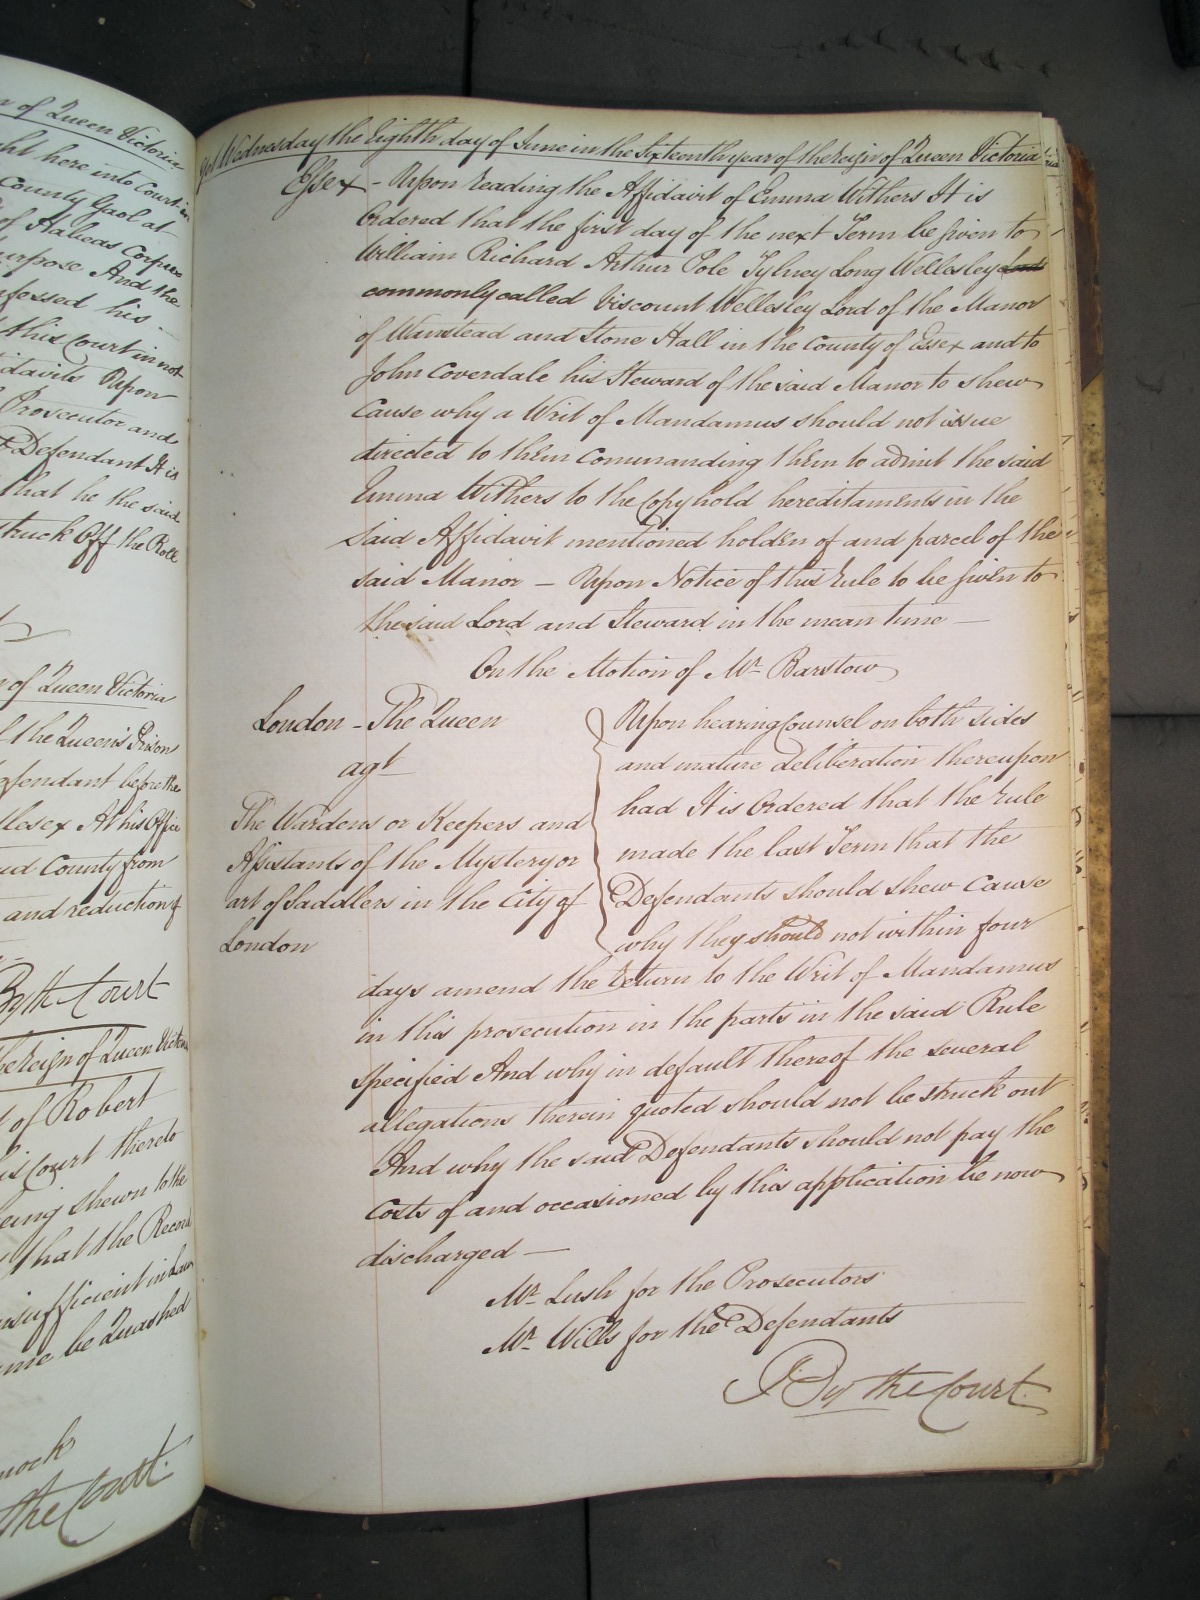 r of Queen Victoria
ht here into Court in
County Gaol at
of Habeas Corpus
urpose And the
nfessed his
this Court in not
idavits Upon
Prosecutor and
Defendant It is
that he the said
truck Off the Roll
n of Queen Victoria
f the Queen's Prison
efendant before the
dlesex At his Office
aid County from
and reduction of
By the Court
the reign of Queen Victoria
t of Robert
is Court thereto
eing shewn to the
that the Record
insufficient in Law
ame be Quashed
nock
the Court.
Yet Wednesday the Eighth day of June in the Sixteenth year of the reign of Queen Victoria
Essex - Upon reading the Affidavit of Emma Withers It is
Ordered that the first day of the next Term be given to
William Richard Arthur Pole Tylney Long Wellesley
commonly called Viscount Wellesley Lord of the Manor
of Wanstead and Stone Hall in the County of Essex and to
John Coverdale his Steward of the said Manor to shew
Cause why a Writ of Mandamus should not issue
directed to them Commanding them to admit the said
Emma Withers to the Copyhold hereditaments in the
said Affidavit mentioned holden of and parcel of the
said Manor — Upon Notice of this Rule to be given to
the said Lord and Steward in the mean time —
On the Motion of Mr. Barstow
London - The Queen
agt
The Wardens or Keepers and
Assistants of the Mystery or
art of Saddlers in the City of
London
Upon hearing Counsel on both sides
and mature deliberation thereupon
had It is Ordered that the rule
made the last Term that the
Defendants should shew Cause
why they should not within four
days amend the return to the Writ of Mandamus
in this prosecution in the parts in the said Rule
specified And why in default thereof the several
allegations therein quoted should not be struck out
And why the said Defendants should not pay the
Costs of and occasioned by this application be now
discharged —
Mr. Lush for the Prosecutors
Mr. Wills for the Defendants
By the Court.